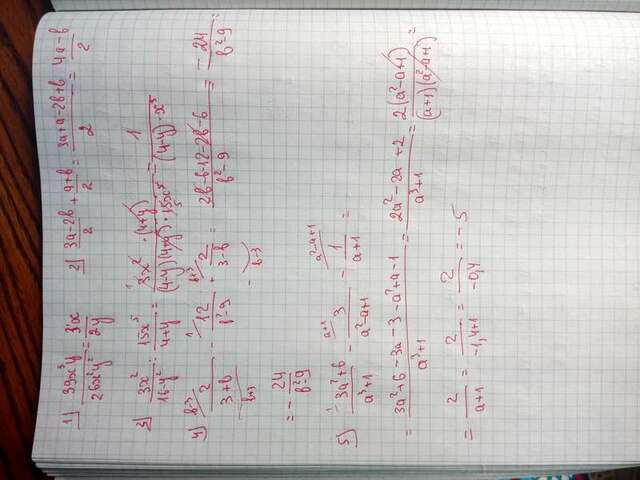 1) 39x³y / 26x²y² = 3x / 2y   2) (3a-2b)/2 + (a+b)/2 = (3a+a-2b+b)/2 = (4a-b)/2
3) 3x² / (16-y²) : 15x⁵ / (4+y) = 3x² · (4+y) / ((4-y)(4+y) · 15x⁵) = 1 / ((4-y) · x³)
4) 2 / (3+b) - 12 / (b²-9) + 2 / (3-b) = (2b-6-12-2b-6) / (b²-9) = -24 / (b²-9) =
= - 24 / (b²-9)
5) (3a²+6) / (a³+1) - 3 / (a²-a+1) - 1 / (a+1) =
= (3a²+6-3a-3-a²+a-1) / (a³+1) = (2a²-2a+2) / (a³+1) = 2(a²-a+1) / ((a+1)(a²-a+1)) =
= 2 / (a+1) = 2 / (-1,4+1) = 2 / (-0,4) = -5